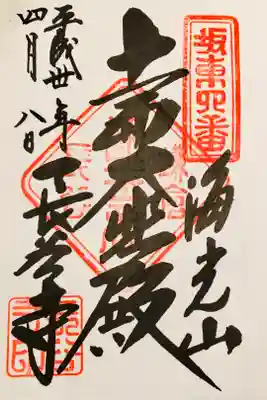 坂東四番
海光山
十一面大悲殿
長谷寺
平成卅年
四月八日